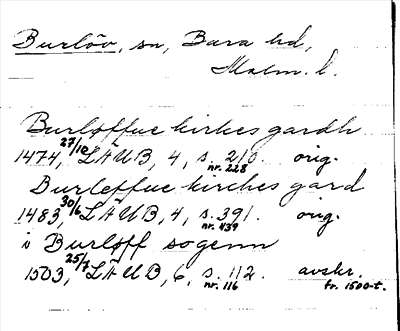 Burlöv, sn, Bara hd,
Malm. l.
Burløffue kirkes gardh
1474, 27/10 LÄUB, 4, s. 210 orig.
nr. 228
Burleffue kirches gard
1483, 30/6 LÄUB, 4, s. 391. orig.
nr. 439
i Burløff sogenn
1503, 25/7 LÄUB, 6, s. 112. avskr.
nr. 116 fr. 1500-t.